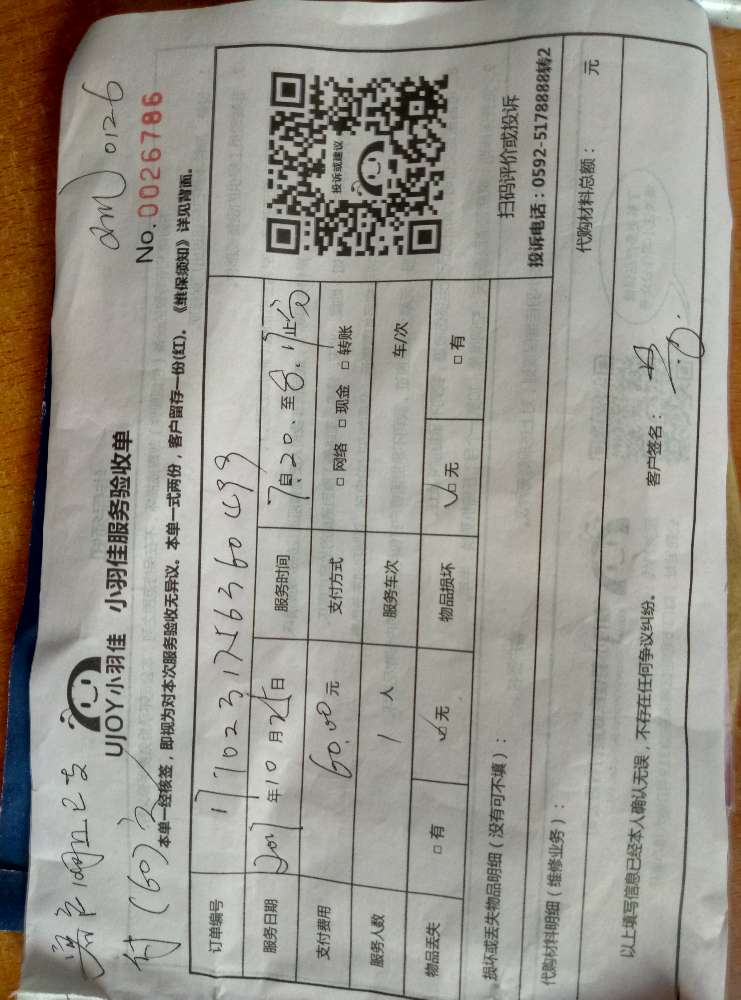 0126
No. 0026786
UJOY小羽佳 小羽佳服务验收单
付(60)元
本单一经核签，即视为对本次服务验收无异议。本单一式两份，客户留存一份(红)。《维保须知》详见背面。
订单编号
服务日期 2017年10月25日 服务时间
支付费用 60.00元 支付方式 □ 网络 □ 现金 □ 转账
服务人数 1人 服务车次 车/次
物品丢失 □有 ✓□无 物品损坏 ✓□无 □有
投诉或建议
扫码评价或投诉
投诉电话：0592-5178888转2
损坏或丢失物品明细（没有可不填）：
代购材料明细（维修业务）： 代购材料总额： 元
以上填写信息已经本人确认无误，不存在任何争议纠纷。 客户签名：